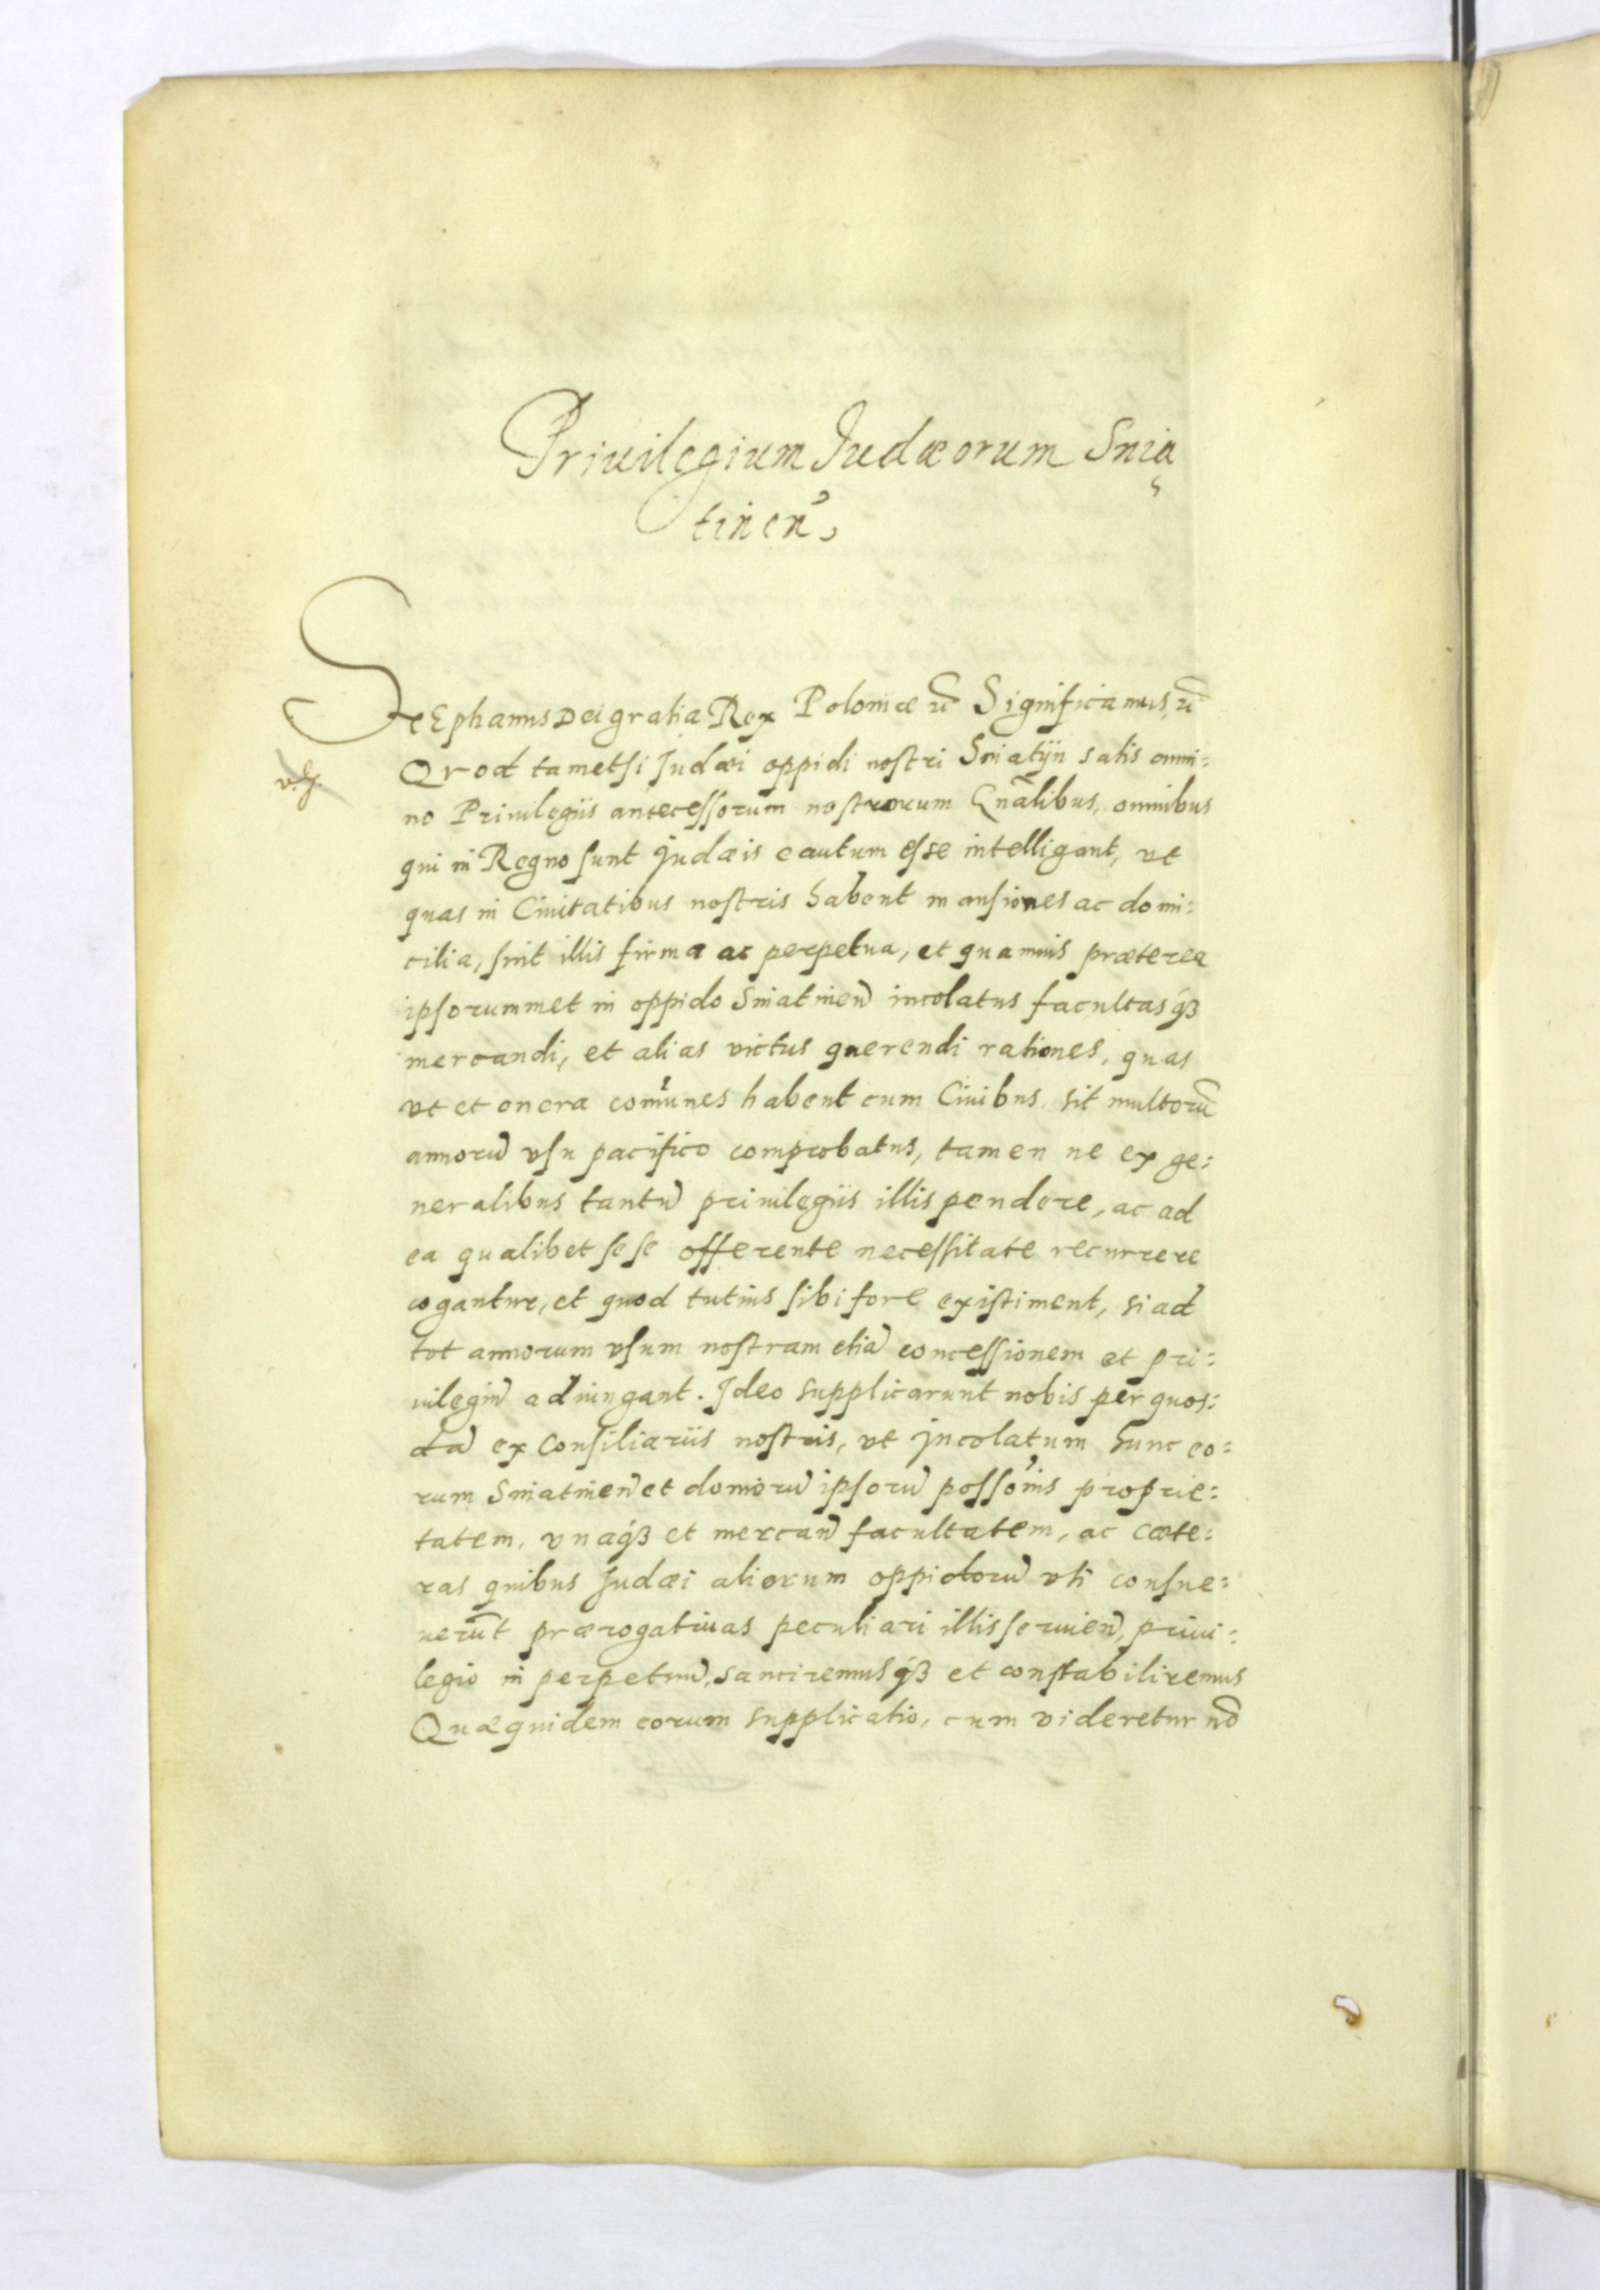 Priuilegium Judæorum Snia
tinen̄,
StEphanus Dei gratia Rex Poloniæ etc̃ Significamus, etc̃
Quod tametsi Judæi oppidi nostri Sniatijn satis omni:
no Priuilegiis antecessorum nostrorum Gnãlibus, omnibus
qui in Regno sunt Judæis cautum esse intelligant, vt
quas in Ciuitatibus nostris habent mansiones ac domi:
cilia, sint illis firma ac perpetua, et quamuis præterea
ipsorummet in oppido Sniatinen̄ incolatus facultasqꝫ
mercandi, et alias victus querendi rationes, quas
vt et onera com̃unes habent cum Ciuibus, sit multorũ
annorũ vsu pacifico comprobatus, tamen ne ex ge:
neralibus tantũ priuilegiis illis pendere, ac ad
ea qualibet sese offerente necessitate recurrere
cogantur, et quod tutius sibi fore existiment, si ad
tot annorum vsum nostram etiã concessionem et pri:
uilegiũ adiungant. Ideo supplicarunt nobis per quos:
dã ex Consiliariis nostris, vt Jncolatum hunc eo:
rum Sniatinen̄ et domorũ ipsorũ posso͂nis proprie:
tatem, vnaqꝫ et mercan̄ facultatem, ac cæte:
ras quibus Judæi aliorum oppidorũ vti consue:
uerũt prærogatiuas peculiari illis seruien̄, priui:
legio in perpetuũ, sanciremusqꝫ et constabiliremus
Quæquidem eorum supplicatio, cum videretur nõ